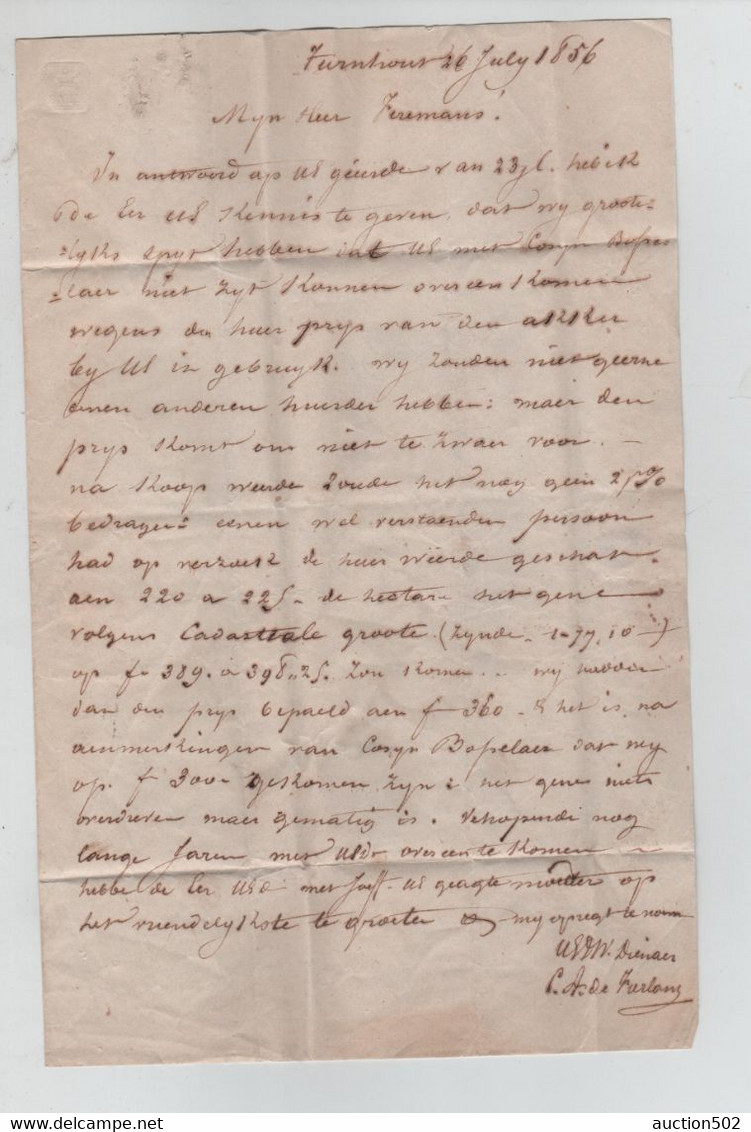 Turnhout 26 July 1856
Myn Heer
In antwoord op UE geëerde van 23 jl. heb ik
de Eer UE kennis te geven, dat wy groote-
-lyks spyt hebben dat UE met Cosyn Bosse
-laer niet zyt konnen overeen komen
wegens den huer prys van den akker
by UE in gebruyk. wy zouden niet geerne
eenen anderen huerder hebben: maer den
prys komt ons niet te zwaer voor. —
na koop weerde zoude het nog geen 2 p%
bedragen: eenen wel verstaenden persoon
had op verzoek de huer weerde geschat
aen 220 a 225 - de hectare het gene
volgens Cadastrale groote (zynde - 1-77,10 -)
op f 389. a 398,,25. zou komen... wy hadden
dan den prys bepaeld aen f 360 - & het is na
aenmerkingen van Cosyn Bosselaer dat wy
op f 300 - gekomen zyn: het gene niets
overdreven maer gematig is. Verhopende nog
lange Jaren met UEd overeen te komen
hebbe de Eer UEd met UE geagte moeder op
het vriendelykste te groeten & my opregt te noem
UEDW. Dienaer
auction502